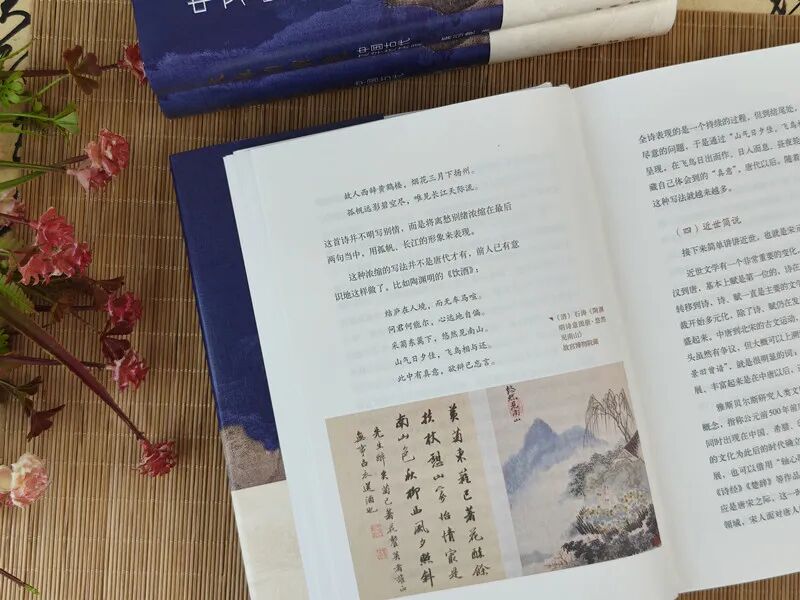 故人西辞黄鹤楼，烟花三月下扬州。
孤帆远影碧空尽，唯见长江天际流。
这首诗并不明写别情，而是将离愁别绪浓缩在最后
两句当中，用孤帆、长江的形象来表现。
这种浓缩的写法并不是唐代才有，前人已有意
识地这样做了。比如陶渊明的《饮酒》：
结庐在人境，而无车马喧。
问君何能尔，心远地自偏。
采菊东篱下，悠然见南山。
山气日夕佳，飞鸟相与还。
此中有真意，欲辩已忘言。
（清）石涛《陶渊
明诗意图册·悠然
见南山》
故宫博物院藏
悠然见南山
黄菊东篱已著花酿余
扶杖憩山家怡情最是
南山色秋柳西风夕照斜
全诗表现的是一个持续的过程，但到结尾处，
尽意的问题，于是通过“山气日夕佳，飞鸟
呈现，在飞鸟日出而作、日入而息、昼夜轮
藏自己体会到的“真意”，唐代以后，随着
这种写法就越来越多。
（四）近世简说
接下来简单讲讲近世，也就是宋元
近世文学有一个非常重要的变化，
汉到唐，基本上赋是第一位的，诗在
转移到诗，诗、赋一直是主要的文
裁开始多元化，除了诗、赋仍在发
盛起来。中唐到北宋的古文运动，
头虽然有争议，但大概可以上溯
景回曾谱”，就是很明显的词；
展、丰富起来是在中唐以后，还
雅斯贝尔斯研究人类文
概念，指称公元前500年前
同时出现在中国、希腊、
的文化为此后的时代确立
展，也可以借用“轴心
《诗经》《楚辞》等作品
应是唐宋之际，这一
领域，宋人面对唐人